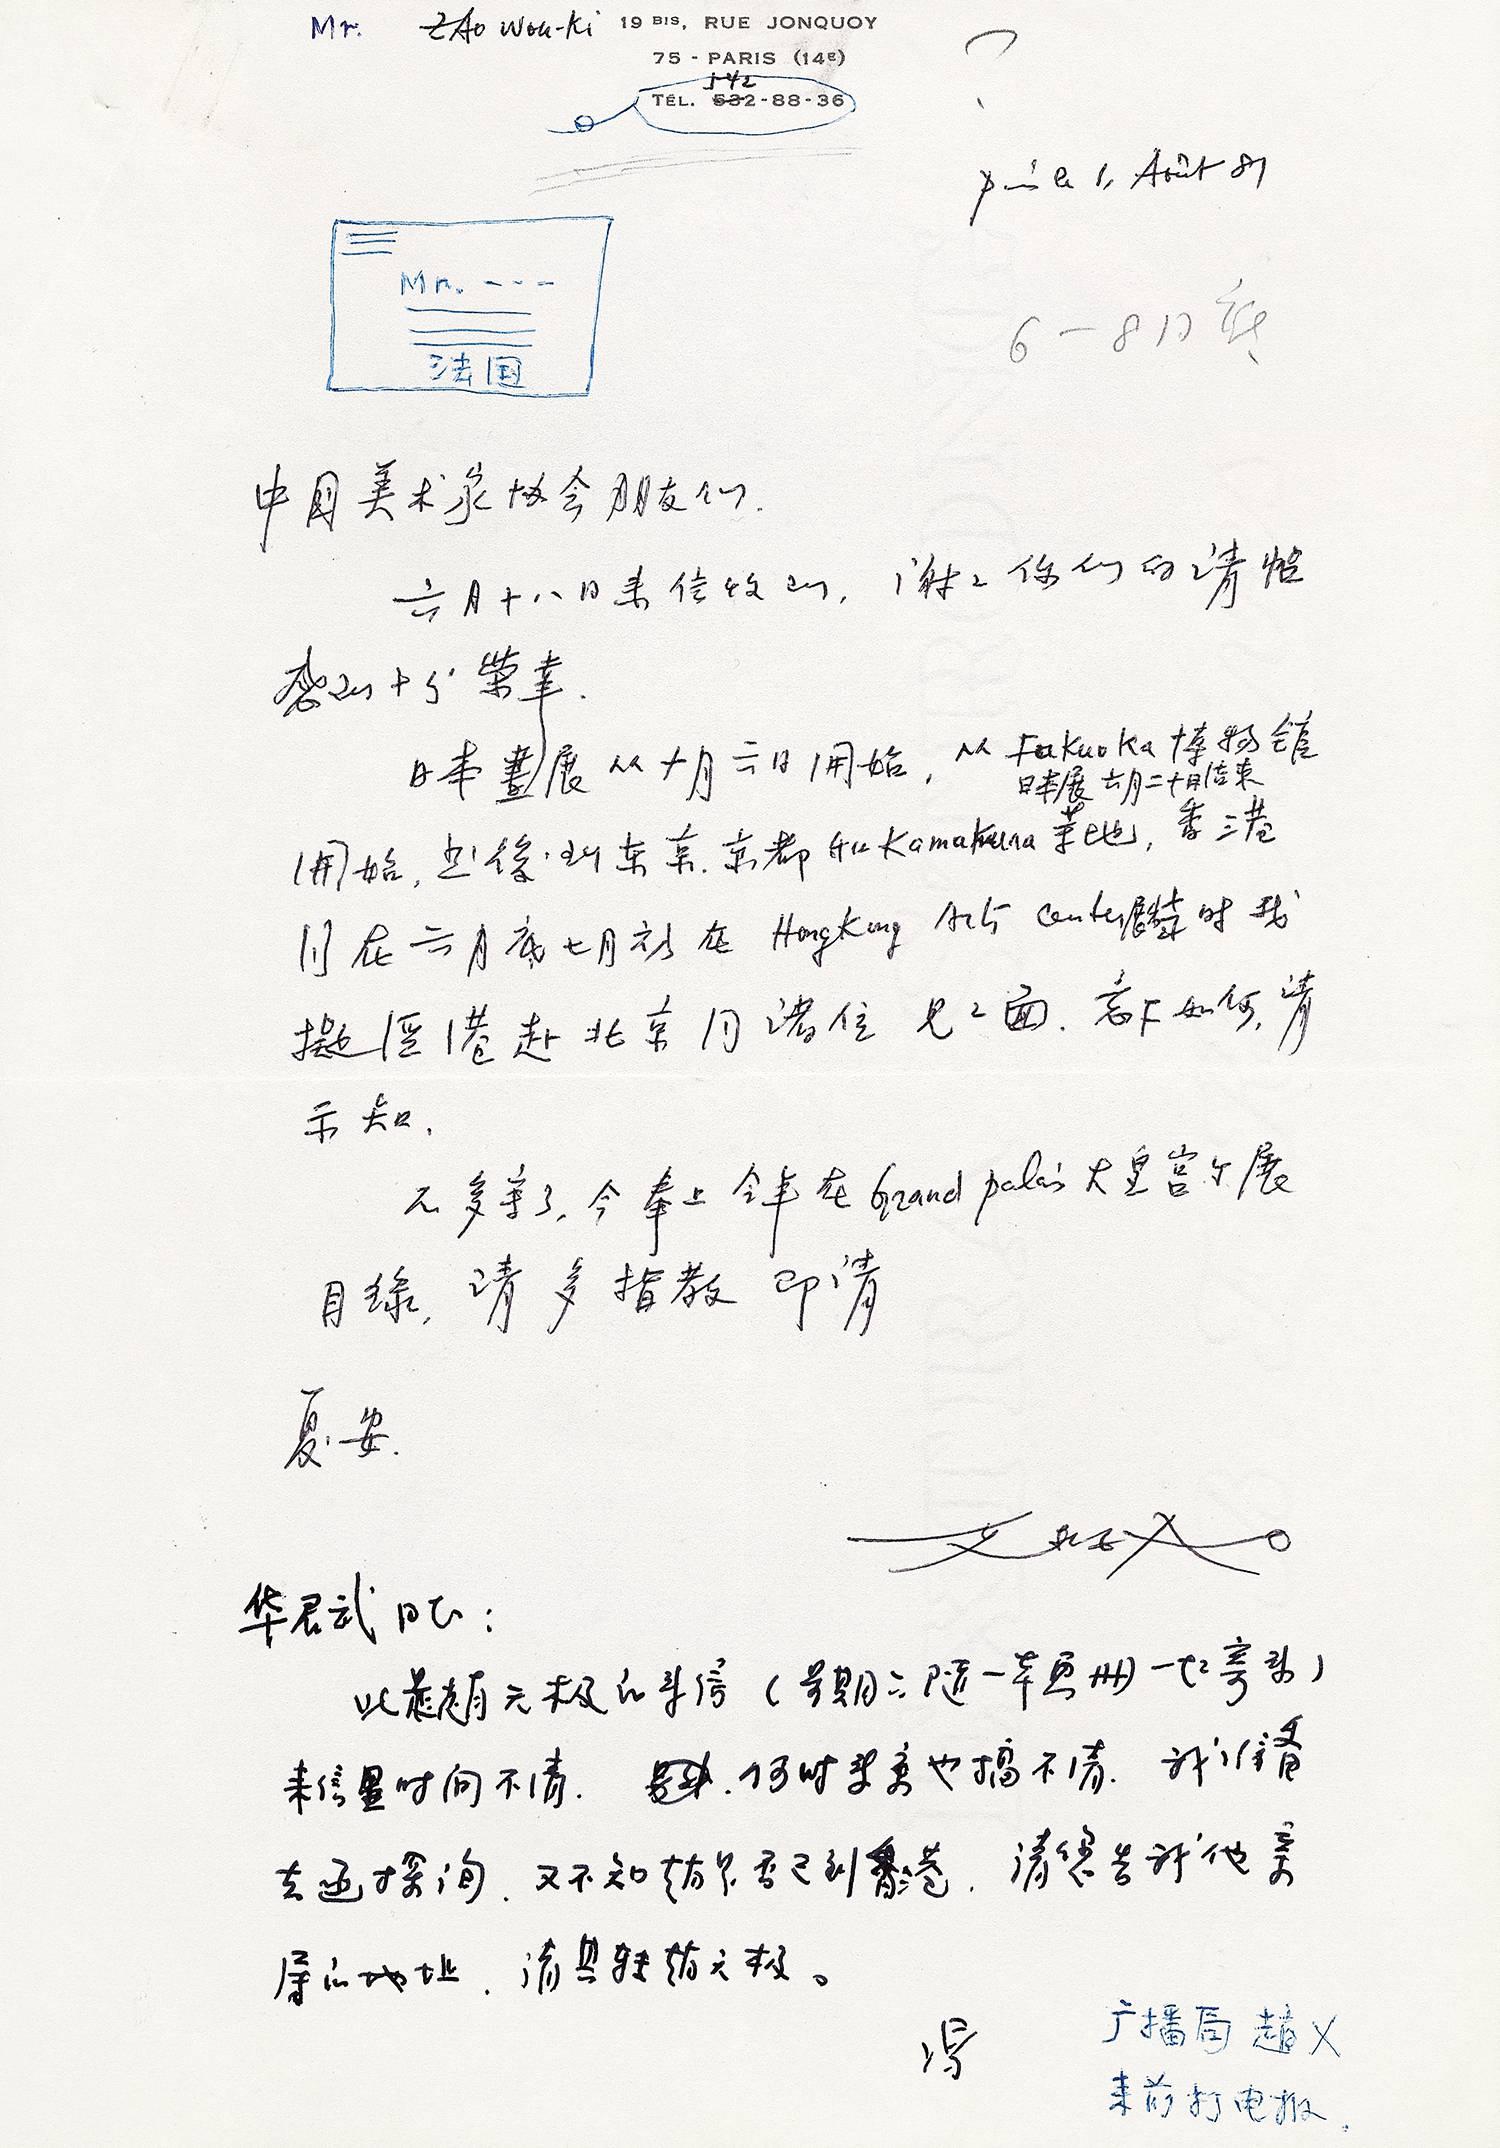 Mr. ZAO WOU-KI 19 BIS, RUE JONQUOY
75 - PARIS (14E)
542
TÉL. 532-88-36
Paris le 1, Août 81
Mr. ---
法国
6-8日
中国美术家协会朋友们.
六月十八日来信收到, 谢谢你们的请帖
感到十分荣幸.
日本畫展从十月六日開始, 从 Fukuoka 博物館
日本展六月二十日结束
開始, 然後到东京.京都和Kamakura等地, 香港
同在六月底七月初在 HongKong Arts Center展. 时我
擬經港赴北京同諸位见见面. 意下如何, 请
示知.
不多写了, 今奉上今年在Grand palais大皇宫个展
目錄, 请多指教 即请
夏安.
无极
华君武同志:
此是趙无极的来信(星期六随一本画册一起寄来)
来信是时间不清. 何时来京也搞不清. 我准备
去函探询, 又不知赵是否已到香港, 请您告诉他亲
属的地址, 请其转赵无极。
冯
广播局 趙X
来前打电报.